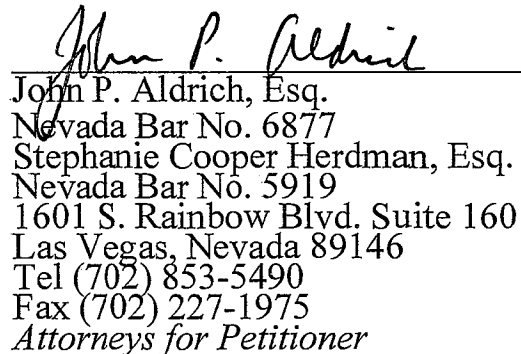 John P. Aldrich
John P. Aldrich, Esq.
Nevada Bar No. 6877
Stephanie Cooper Herdman, Esq.
Nevada Bar No. 5919
1601 S. Rainbow Blvd. Suite 160
Las Vegas, Nevada 89146
Tel (702) 853-5490
Fax (702) 227-1975
Attorneys for Petitioner